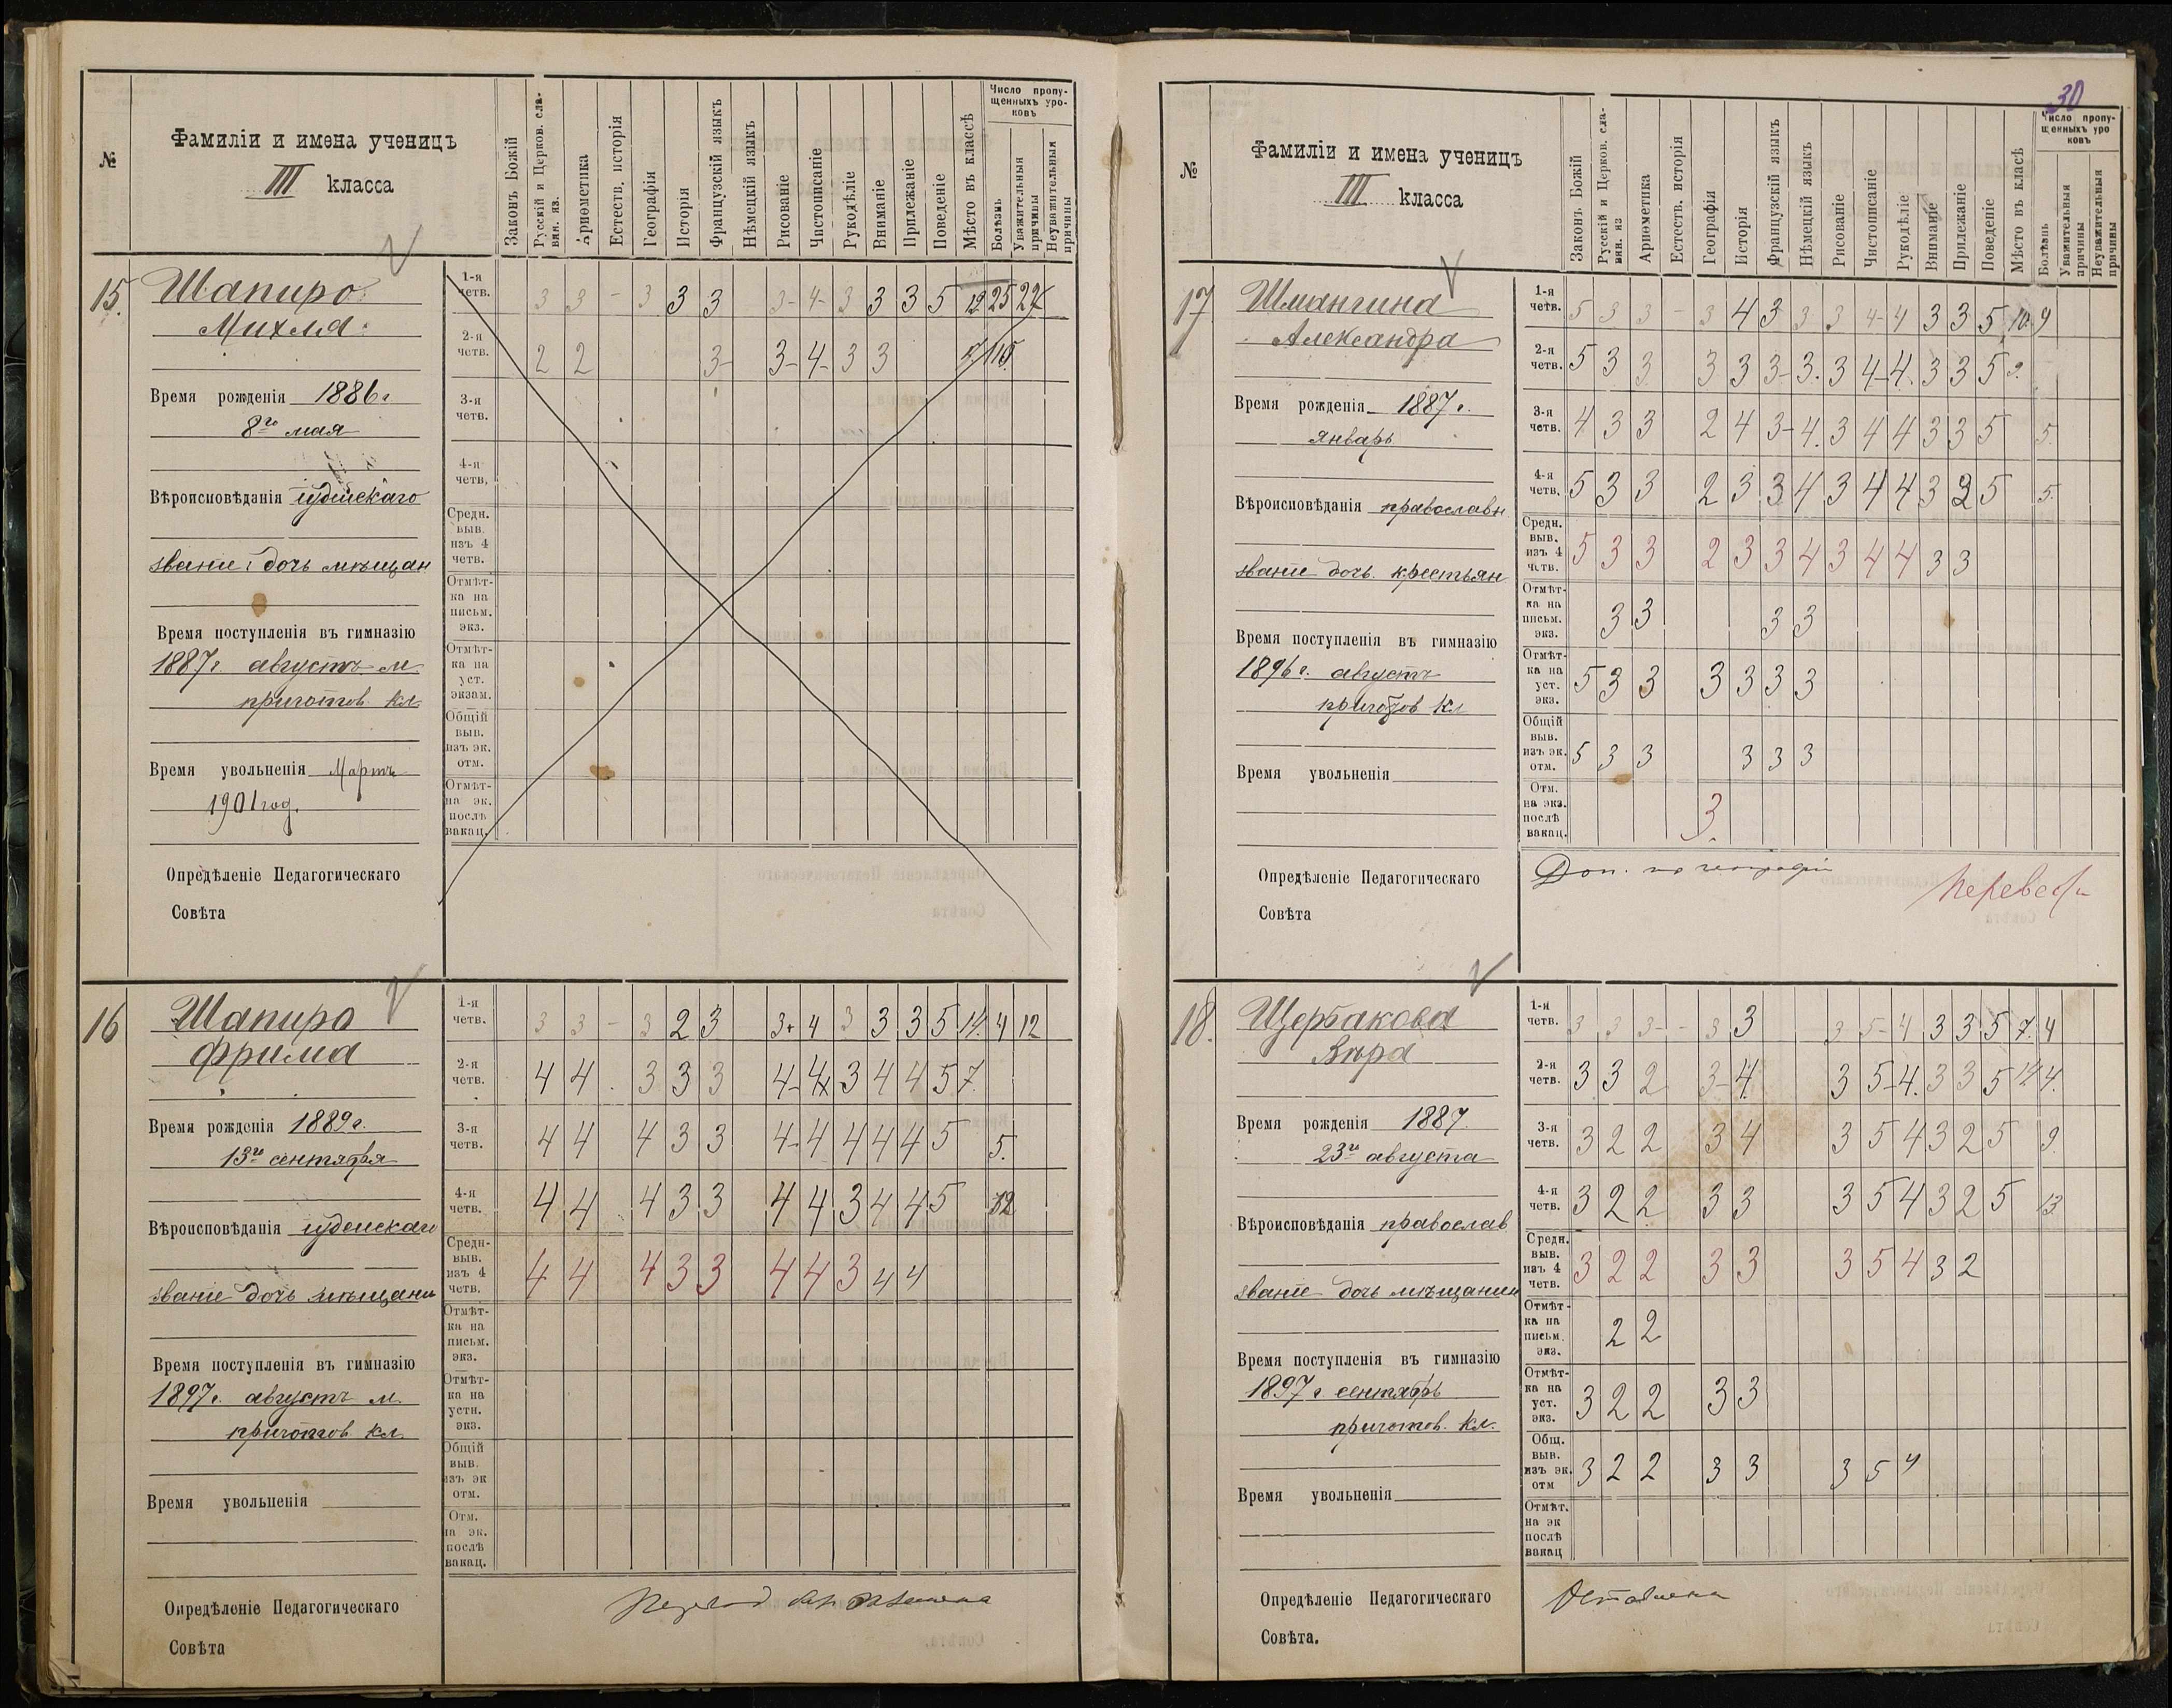 №
Фамиліи и имена ученицъ
III класса
Законъ Божій
Русскій и Церков. сла-
вян. яз.
Ариѳметика
Естеств. исторія
Географія
Исторія
Французскій языкъ
Нѣмецкій языкъ
Рисованіе
Чистописаніе
Рукодѣліе
Вниманіе
Прилежаніе
Поведеніе
Мѣсто въ классѣ
Число пропу-
щенныхъ уро-
ковъ
Болѣзнь
Уважительныя
причины
Неуважительныя
причины
15.
Шапиро
Михля
Время рожденія 1886г
8го мая
Вѣроисповѣданія іудейскаго
званіе дочь мѣщан
Время поступленія въ гимназію
1887г. августъ м
приготов. кл.
Время увольненія Мартъ
1901 год.
Опредѣленіе Педагогическаго
Совѣта
1-я
четв.
3 3 – 3 3 3 3- 4- 3 3 3 5 12 25 27
2-я
четв.
2 2 3- 3- 4- 3 3 115
3-я
четв.
4-я
четв.
Средн.
выв.
изъ 4
четв.
Отмѣт-
ка на
письм.
экз.
Отмѣт-
ка на
уст.
экзам.
Общій
выв.
изъ эк.
отм.
Отмѣт-
на эк.
послѣ
вакац.
16
Шапиро
Фрима
Время рожденія 1889г.
13го сентября
Вѣроисповѣданія іудейскаго
званіе дочь мѣщани
Время поступленія въ гимназію
1897г. августъ м.
приготов кл.
Время увольненія
Опредѣленіе Педагогическаго
Совѣта
1-я
четв.
3 3 – 3 2 3 3+ 4 3 3 3 5 14. 4 12
2-я
четв.
4 4 3 3 3 4- 4 3 4 4 5 7.
3-я
четв.
4 4 4 3 3 4- 4 4 4 4 5 5.
4-я
четв.
4 4 4 3 3 4 4 3 4 4 5 12
Средн-
выв.
изъ 4
четв.
4 4 4 3 3 4 4 3 4 4
Отмѣт-
ка на
письм.
экз.
Отмѣт-
ка на
устн.
экз.
Общій
выв.
изъ эк
отм.
Отм.
на эк.
послѣ
вакац.
30
№
Фамиліи и имена ученицъ
III класса
Законъ Божій
Русскій и Церков. сла-
вян. яз
Ариѳметика
Естеств. исторія
Географія
Исторія
Французскій языкъ
Нѣмецкій языкъ
Рисованіе
Чистописаніе
Рукодѣліе
Вниманіе
Прилежаніе
Поведеніе
Мѣсто въ класѣ
Число пропу-
щенныхъ уро
ковъ
Болѣзнь
Уважительныя
причины
Неуважительныя
причины
17
Шмангина
Александра
Время рожденія 1887г.
январь
Вѣроисповѣданія православн
званіе дочь крестьян
Время поступленія въ гимназію
1896г. августъ
приготов кл
Время увольненія
Опредѣленіе Педагогическаго
Совѣта
1-я
четв.
5 3 3 – 3 4 3 3 3 4- 4 3 3 5 10. 9
2-я
четв.
5 3 3 3 3 3- 3. 3 4- 4. 3 3 5 9.
3-я
четв.
4 3 3 2 4 3- 4. 3 4 4 3 3 5 5.
4-я
четв.
5 3 3 2 3 3 4 3 4 4 3 3 5 5.
Средн.
выв.
изъ 4
четв.
5 3 3 2 3 3 4 3 4 4 3 3
Отмѣт-
ка на
письм.
экз.
3 3 3 3
Отмѣт-
ка на
уст.
экз.
5 3 3 3 3 3 3
Общій
выв.
изъ эк.
отм.
5 3 3 3 3 3
Отм.
на экз.
послѣ
вакац.
3.
Доп. по географіи
18.
Щербакова
Вѣра
Время рожденія 1887.
23го августа
Вѣроисповѣданія православ
званіе дочь мѣщанин
Время поступленія въ гимназію
1897г сентябрь
приготов. кл.
Время увольненія
Опредѣленіе Педагогическаго
Совѣта.
1-я
четв.
3 3 3- – 3 3 3 5- 4 3 3 5 7. 4
2-я
четв.
3 3 2 3- 4. 3 5- 4. 3 3 5 12 4.
3-я
четв.
3 2 2 3 4 3 5 4 3 2 5 9.
4-я
четв.
3 2 2 3 3 3 5 4 3 2 5 13
Средн.
выв.
изъ 4
четв.
3 2 2 3 3 3 5 4 3 2
Отмѣт-
ка на
письм.
экз.
2 2
Отмѣт-
ка на
уст.
экз.
3 2 2 3 3
Общ.
выв.
изъ эк.
отм
3 2 2 3 3 3 5 4
Отмѣт.
на эк
послѣ
вакац
Оставлена